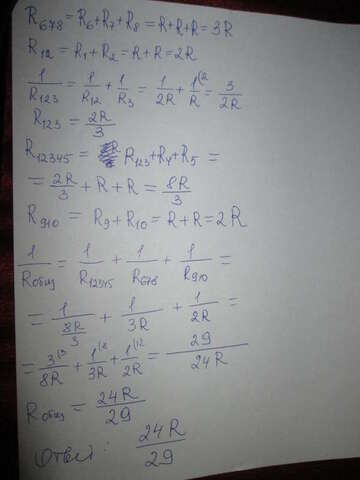 R₆₇₈ = R₆+R₇+R₈ = R+R+R = 3R
R₁₂ = R₁+R₂ = R+R = 2R
1/R₁₂₃ = 1/R₁₂ + 1/R₃ = 1/2R + 1⁽²/R = 3/2R
R₁₂₃ = 2R/3
R₁₂₃₄₅ = R₁₂₃+R₄+R₅ =
= 2R/3 + R + R = 8R/3
R₉₁₀ = R₉ + R₁₀ = R + R = 2R
1/Rобщ = 1/R₁₂₃₄₅ + 1/R₆₇₈ + 1/R₉₁₀ =
= 1/(8R/3) + 1/3R + 1/2R =
= 3⁽³/8R + 1⁽⁸/3R + 1⁽¹²/2R = 29/24R
Rобщ = 24R/29
Ответ: 24R/29